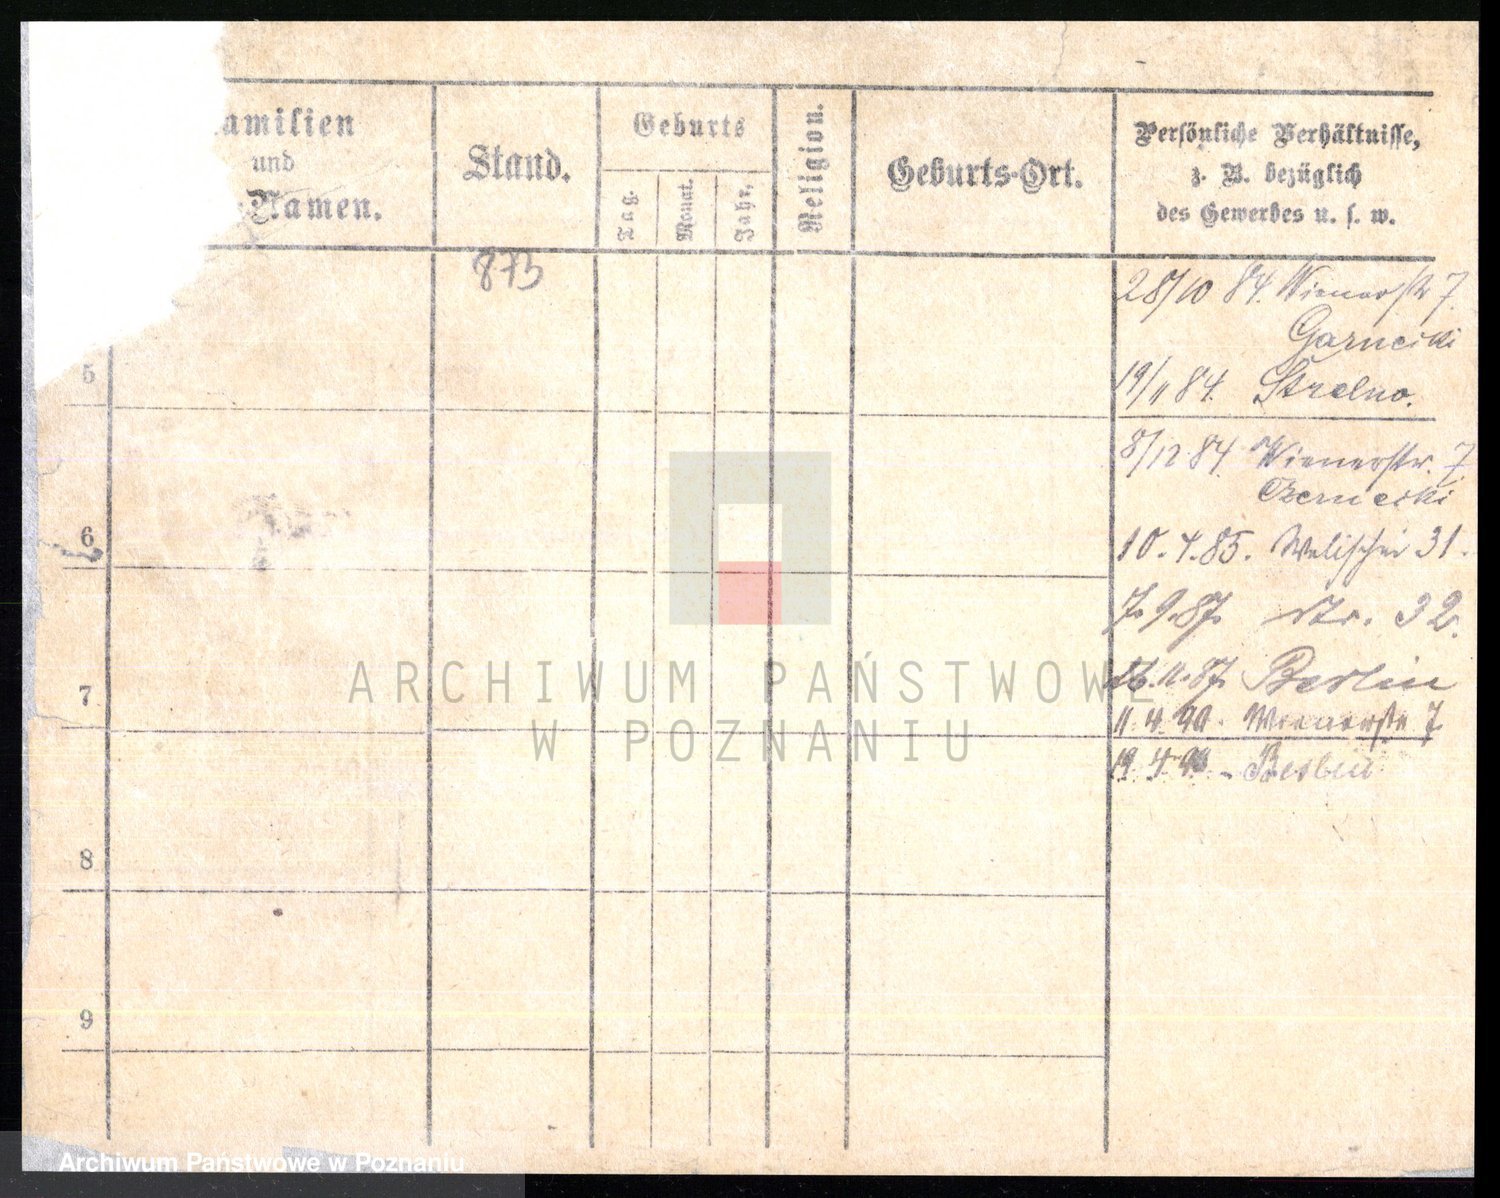 amilien
und
Namen.
Stand.
Geburts
Tag.
Monat.
Jahr.
Religion.
Geburts-Ort.
Persönliche Verhältnisse,
z. B. bezüglich
des Gewerbes u. s. w.
873
28/10 84. Wienerstr 7.
5
19/11 84. Strelno.
8/12 84 Wienerstr. 7
6
10.4.85. Walischei 31.
7.9.87. 32.
16.11.87. Berlin
7
11.4.90. Wienerstr 7
19.4.90 - Berlin
8
9
ARCHIWUM PAŃSTWOWE
W POZNANIU
Archiwum Państwowe w Poznaniu